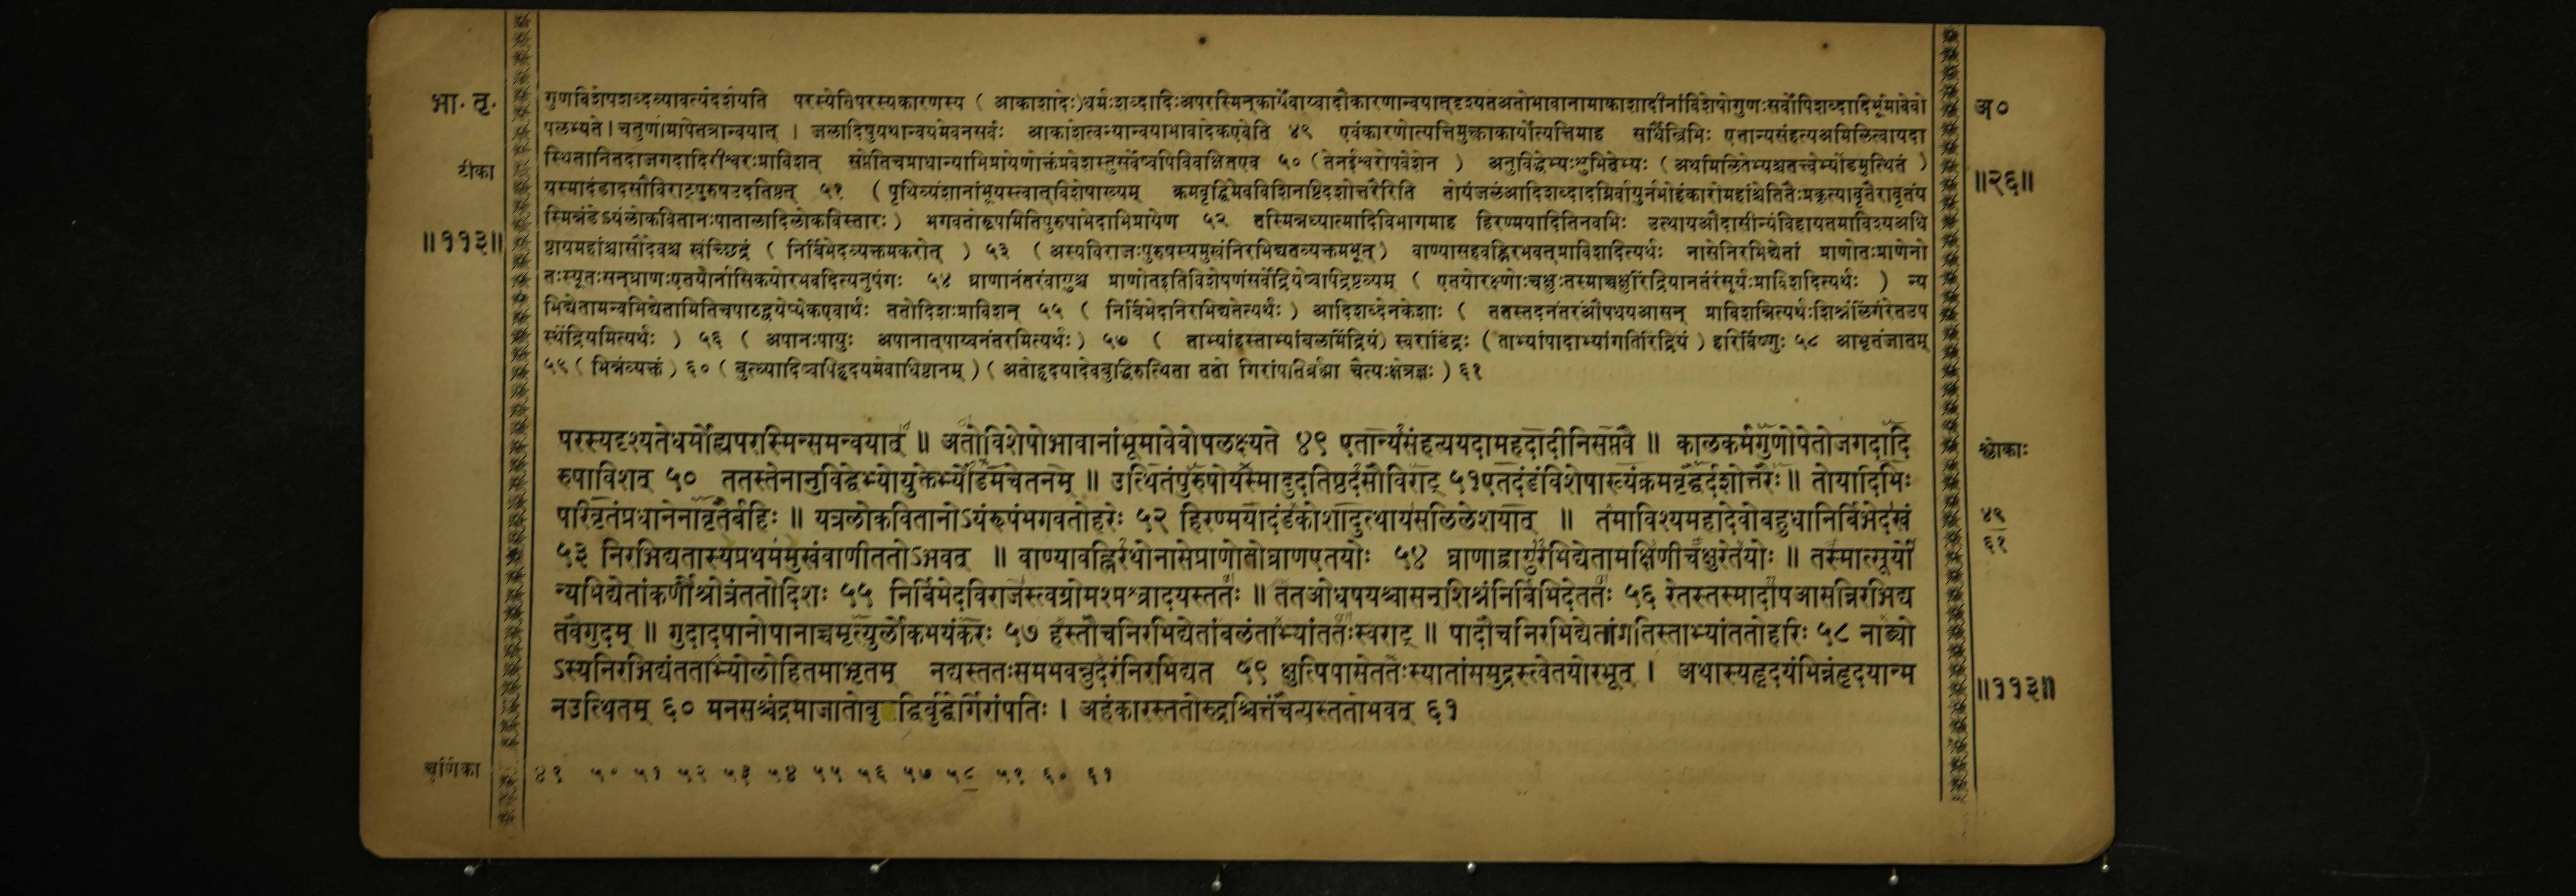 भा. तृ.
टीका
॥११३॥
गुणविशेषशब्दव्यावर्त्यदर्शयति परस्येतिपरस्यकारणस्य ( आकाशादेः)धर्मःशब्दादिःअपरस्मिन्कार्येवाय्वादौकारणान्वयात्दृश्यतेअतोभावानामाकाशादीनांविशेषोगुणःसर्वोपिशब्दादिर्भूमावेवो
पलभ्यते। चतुर्णामपितत्रान्वयात् । जलादिषुयथान्वयमेवनसर्वः आकाशेत्वन्यान्वयाभावादेकएवेति ४९ एवंकारणोत्पत्तिमुक्ताकार्योत्पत्तिमाह सार्धैस्त्रिभिः एतान्यसंहत्यअमिलित्वायदा
स्थितानितदाजगदादिरीश्वरःप्राविशत् सप्तेतिचप्राधान्याभिप्रायेणोक्तंप्रवेशस्तुसर्वेष्वपिविवक्षितएव ५० (तेनईश्वरोपवेशेन ) अनुविद्धेभ्यःक्षुभितेभ्यः ( अथमिलितेभ्यश्चतत्त्वेभ्योंडमुत्थितं )
यस्मादंडादसौविराट्पुरुषउदतिष्ठत् ५१ ( पृथिव्यंशानांभूयस्त्वात्विशेषाख्यम् क्रमवृद्धिमेवविशिनष्टिदशोत्तरैरिति तोयंजलंआदिशब्दादग्निर्वायुर्नभोहंकारोमहांश्चेतितैःप्रकृत्यावृतैरावृतंय
स्मिन्नंडेऽयंलोकवितानःपातालादिलोकविस्तारः ) भगवतोरूपमितिपुरुषाभेदाभिप्रायेण ५२ तस्मिन्नध्यात्मादिविभागमाह हिरण्मयादितिनवभिः उत्थायऔदासीन्यंविहायतमाविश्यअधि
ष्ठायमहांश्चासौदेवश्च खंच्छिद्रं ( निर्बिभेदव्यक्तमकरोत् ) ५३ ( अस्यविराजःपुरुषस्यमुखंनिरभिद्यतव्यक्तमभूत्) वाण्यासहवह्निरभवत्प्राविशदित्यर्थः नासेनिरभिद्येतां प्राणोतःप्राणेनो
तःस्यूतःसन्घ्राणःएतयोर्नासिकयोरभवदित्यनुषंगः ५४ घ्राणानंतरंवायुश्च प्राणोतइतिविशेषणंसर्वेंद्रियेष्वपिद्रष्टव्यम् ( एतयोरक्ष्णोःचक्षुःतस्माच्चक्षुरिंद्रियानंतरंसूर्यःप्राविशदित्यर्थः ) न्य
भिद्येतामन्वभिद्येतामितिचपाठद्वयेप्येकएवार्थः ततोदिशःप्राविशन् ५५ ( निर्बिभेदनिरभिद्यतेत्यर्थः ) आदिशब्देनकेशाः ( ततस्तदनंतरंओषधयआसन् प्राविशन्नित्यर्थःशिश्नंलिंगंरेतउप
स्थेंद्रियमित्यर्थः ) ५६ ( अपानःपायुः अपानात्पाय्वनंतरमित्यर्थः ) ५७ ( ताभ्यांहस्ताभ्यांबलमिंद्रियं) स्वराडिंद्रः (ताभ्यांपादाभ्यांगतिरिंद्रियं ) हरिर्विष्णुः ५८ आभृतंजातम्
५९ ( भिन्नंव्यक्तं ) ६० ( बुत्ध्यादिष्वपिहृदयमेवाधिष्ठानम् ) ( अतोहृदयादेवबुद्धिरुत्थिता ततो गिरांपतिर्ब्रह्मा चैत्यःक्षेत्रज्ञः ) ६१
परस्यदृश्यतेधर्मोह्यपरस्मिन्समन्वयात् ॥ अतोविशेषोभावानांभूमावेवोपलक्ष्यते ४९ एतान्यसंहत्ययदामहदादीनिसप्तवै ॥ कालकर्मगुणोपेतोजगदादि
रुपाविशत् ५० ततस्तेनानुविद्धेभ्योयुक्तेभ्योंडमचेतनम् ॥ उत्थितंपुरुषोयस्मादुदतिष्ठदसौविराट् ५१एतदंडंविशेषाख्यंक्रमवृद्धैर्दशोत्तरैः ॥ तोयादिभिः
परिवृतंप्रधानेनावृतैर्बहिः ॥ यत्रलोकवितानोऽयंरूपंभगवतोहरेः ५२ हिरण्मयादंडकोशादुत्थायसलिलेशयात् ॥ तमाविश्यमहादेवोबहुधानिर्बिभेदखं
५३ निरभिद्यतास्यप्रथमंमुखंवाणीततोऽभवत् ॥ वाण्यावह्निरथोनासेप्राणोतोघ्राणएतयोः ५४ घ्राणाद्वायुरभिद्येतामक्षिणीचक्षुरेतयोः ॥ तस्मात्सूर्यो
न्यभिद्येतांकर्णौश्रोत्रंततोदिशः ५५ निर्बिभेदविराजस्त्वग्रोमश्मश्र्वादयस्ततः ॥ ततओषधयश्चासन्शिश्नंनिर्बिभिदेततः ५६ रेतस्तस्मादापआसन्निरभिद्य
तवैगुदम् ॥ गुदादपानोपानाच्चमृत्युर्लोकभयंकरः ५७ हस्तौचनिरभिद्येतांबलंताभ्यांततःस्वराट् ॥ पादौचनिरभिद्येतांगतिस्ताभ्यांततोहरिः ५८ नाड्यो
ऽस्यनिरभिद्यंतताभ्योलोहितमाभृतम् नद्यस्ततःसमभवन्नुदरंनिरभिद्यत ५९ क्षुत्पिपासेततःस्यातांसमुद्रस्त्वेतयोरभूत् । अथास्यहृदयंभिन्नंहृदयान्म
नउत्थितम् ६० मनसश्चंद्रमाजातोबुद्धिर्बुद्धेर्गिरांपतिः । अहंकारस्ततोरुद्रश्चित्तंचैत्यस्ततोभवत् ६१
चूर्णिका
४९ ५० ५१ ५२ ५३ ५४ ५५ ५६ ५७ ५८ ५९ ६० ६१
अ०
॥२६॥
श्लोकाः
४९
६१
॥११३॥